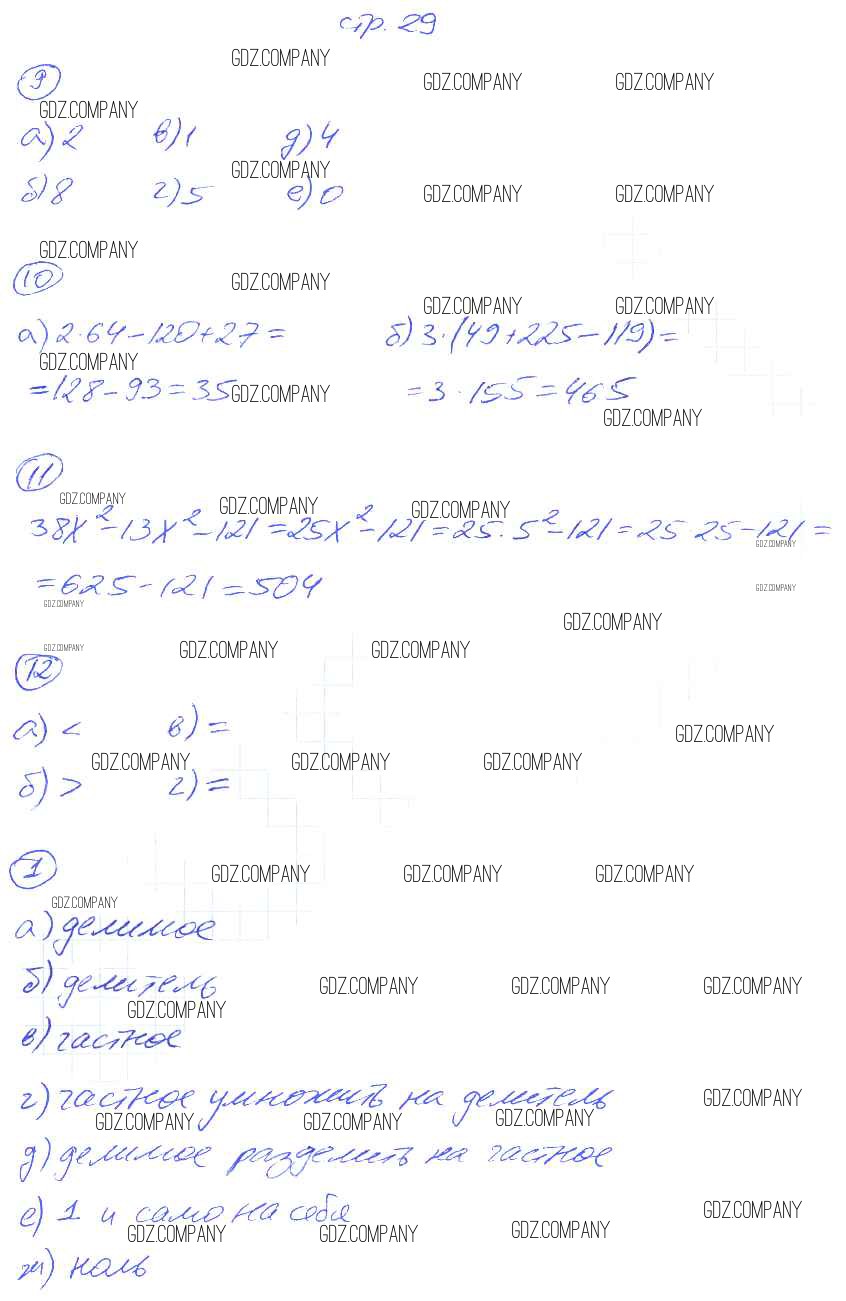 стр. 29
GDZ.COMPANY
9 GDZ.COMPANY GDZ.COMPANY
GDZ.COMPANY
а) 2 в) 1 д) 4
GDZ.COMPANY
б) 8 г) 5 е) 0 GDZ.COMPANY GDZ.COMPANY
GDZ.COMPANY
10 GDZ.COMPANY
GDZ.COMPANY GDZ.COMPANY
а) 2·64-120+27= б) 3·(49+225-119)=
GDZ.COMPANY
=128-93=35 GDZ.COMPANY =3·155=465
GDZ.COMPANY
11
GDZ.COMPANY GDZ.COMPANY GDZ.COMPANY
38x²-13x²-121=25x²-121=25·5²-121=25 25-121=
GDZ.COMPANY
=625-121=504 GDZ.COMPANY
GDZ.COMPANY
GDZ.COMPANY
GDZ.COMPANY GDZ.COMPANY GDZ.COMPANY
12
а) < в) = GDZ.COMPANY
GDZ.COMPANY GDZ.COMPANY GDZ.COMPANY
б) > г) =
1 GDZ.COMPANY GDZ.COMPANY GDZ.COMPANY
GDZ.COMPANY
а) делимое
б) делитель GDZ.COMPANY GDZ.COMPANY GDZ.COMPANY
GDZ.COMPANY
в) частное
г) частное умножить на делитель GDZ.COMPANY
GDZ.COMPANY GDZ.COMPANY GDZ.COMPANY
д) делимое разделить на частное
е) 1 и само на себя GDZ.COMPANY
GDZ.COMPANY GDZ.COMPANY GDZ.COMPANY
ж) ноль